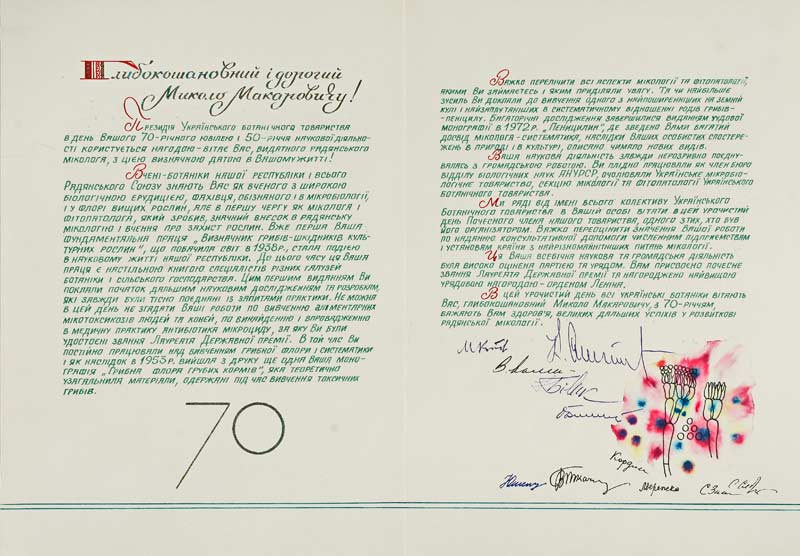 Глибокошановний і дорогий
Миколо Макаровичу!
Президія Українського ботанічного товариства
в день Вашого 70-річного ювілею і 50-річчя наукової діяль-
ності користується нагодою вітає Вас, видатного радянського
міколога, з цією визначною датою в Вашому житті!
Вчені-ботаніки нашої республіки і всього
Радянського Союзу знають Вас як вченого з широкою
біологічною ерудицією, фахівця, обізнаного і в мікробіології,
і у флорі вищих рослин, але в першу чергу як міколога і
фітопатолога, який зробив значний внесок в радянську
мікологію і вчення про захист рослин. Вже перша Ваша
фундаментальна праця „Визначник грибів-шкідників куль-
турних рослин", що побачила світ в 1938р., стала подією
в науковому житті нашої республіки. До цього часу ця Ваша
праця є настільною книгою спеціалістів різних галузей
ботаніки і сільського господарства. Цим першим виданням Ви
поклали початок дальшим науковим дослідженням та розробкам,
які завжди були тісно поєднані із запитами практики. Не можна
в цей день не згадати Вашої роботи по вивченню аліментарних
мікотоксикозів людей та коней, по винайденню і впровадженню
в медичну практику антибіотика мікроциду, за яку Ви були
удостоєні звання Лауреата Державної премії. В той час Ви
постійно працювали над вивченням грибної флори і систематики
і як наслідок в 1953р. вийшла з друку ще одна Ваша моно-
графія „Грибна флора грубих кормів", яка теоретично
узагальнила матеріали, одержані під час вивчення токсичних
грибів.
70
Важко перелічити всі аспекти мікології та фітопатології,
якими Ви займаєтесь і яким приділяли увагу. Та чи найбільше
зусиль Ви доклали до вивчення одного з найпоширеніших на земній
кулі і найзаплутаніших в систематичному відношенні родів грибів-
-пеніцилу. Багаторічні дослідження завершилися виданням чудової
монографії в 1972р. „Пеніцилии", де зведено Вами багатий
досвід міколога-систематика, наслідки Ваших особистих спостере-
жень в природі і в культурі, описано чимало нових видів.
Ваша наукова діяльність завжди нерозривно поєдну-
валась з громадською роботою. Ви плідно працювали як член бюро
відділу біологічних наук АНУРСР, очолювали Українське мікробіо-
логічне товариство, секцію мікології та фітопатології Українського
ботанічного товариства.
Ми раді від імені всього колективу Українського
Ботанічного товариства в Вашій особі вітати в цей урочистий
день Почесного члена нашого товариства, одного з тих, хто був
його організатором. Важко переоцінити значення Вашої роботи
по наданню консультативної допомоги численним підприємствам
і установам країни з найрізноманітніших питань мікології.
Ця Ваша всебічна наукова та громадська діяльність
була високо оцінена партією та урядом. Вам присвоєно почесне
звання Лауреата Державної премії та нагороджено найвищою
урядовою нагородою-орденом Леніна.
В цей урочистий день всі українські ботаніки вітають
Вас, глибокошановний Микола Макаровичу, з 70-річчям,
бажають Вам здоров'я, великих дальших успіхів у розвиткові
радянської мікології.